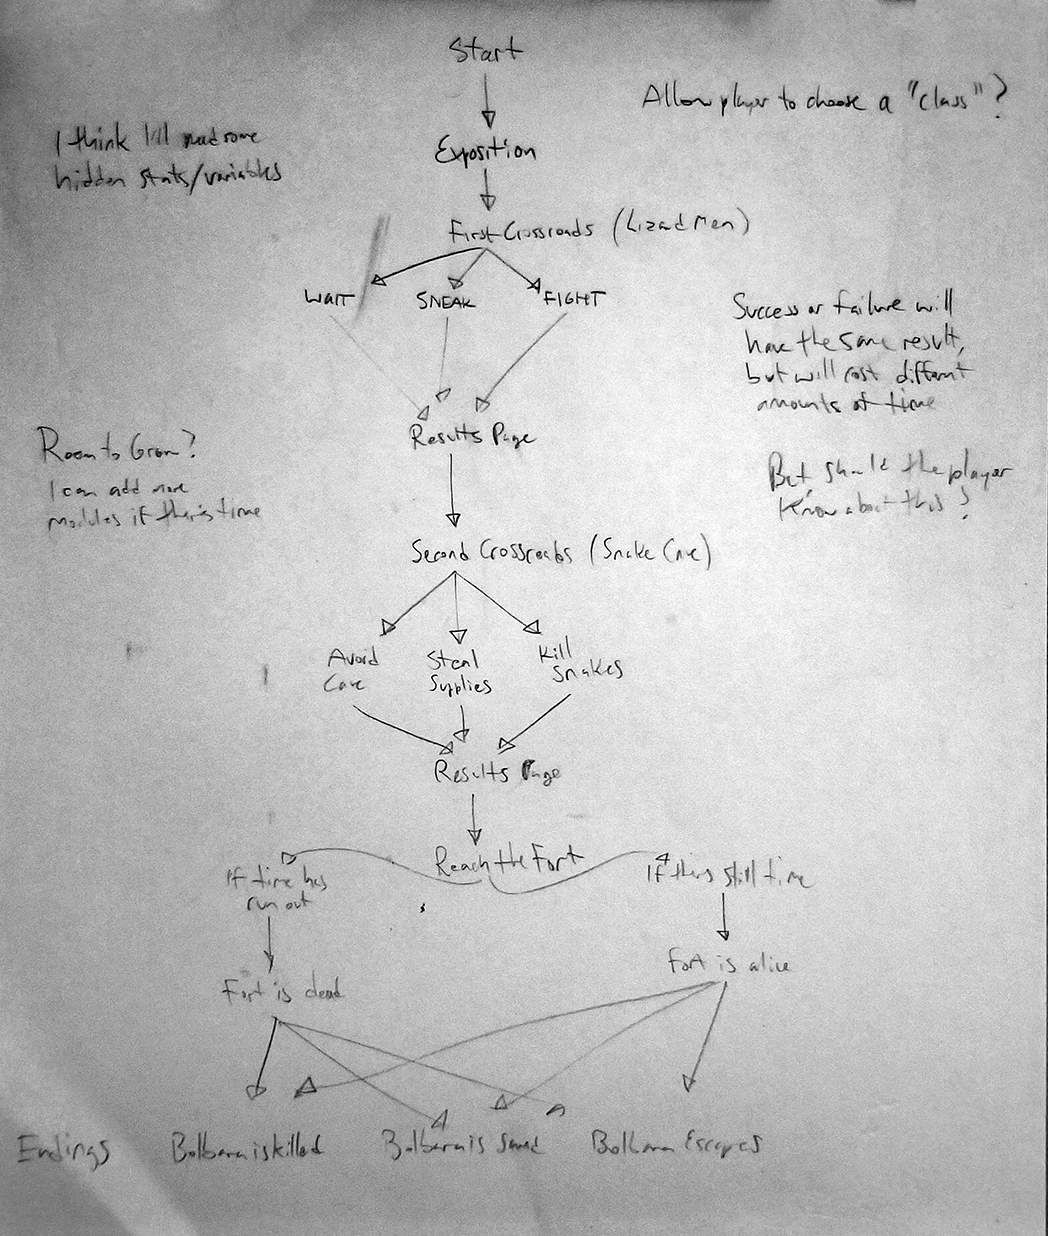 Start
Allow player to choose a "class"?
I think I'll need some
hidden stats/variables
Exposition
First Crossroads (Lizard Men)
WAIT
SNEAK
FIGHT
Success or failure will
have the same result,
but will cost different
amounts of time
Results Page
Room to Grow?
I can add more
modules if there's time
But should the player
know about this?
Second Crossroads (Snake Cave)
Avoid
Cave
Steal
Supplies
Kill
Snakes
Results Page
Reach the Fort
If time has
run out
If there's still time
Fort is dead
Fort is alive
Endings
is killed
is saved
Escapes